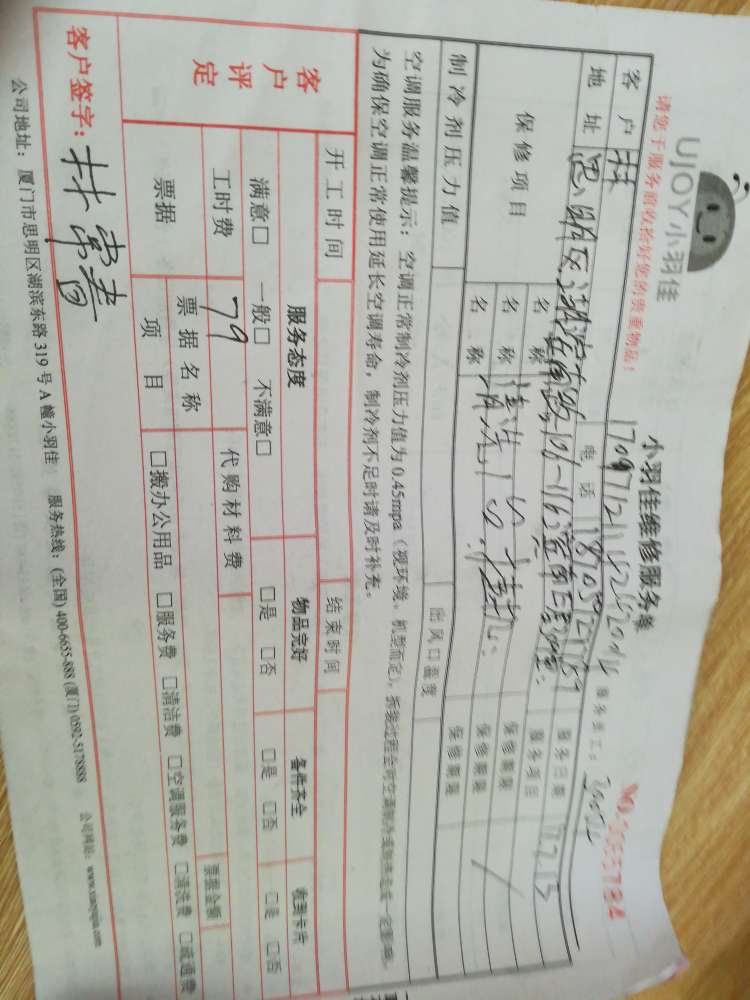 UJOY小羽佳
小羽佳维修服务单
请您于服务前收拾好您的贵重物品！
服务员工：
客户 林
电话
服务日期 17.7.13
地址
服务项目
保修项目
名称
保修期限
名称
保修期限
名称
保修期限
制冷剂压力值
出风口温度
空调服务温馨提示：空调正常制冷剂压力值为0.45mpa（视环境、机型而定），拆装过程会对空调制冷或制热造成一定影响，
为确保空调正常使用延长空调寿命，制冷剂不足时请及时补充。
开工时间
结束时间
客户评定
服务态度
物品完好
备件齐全
收到卡片
满意□ 一般□ 不满意□
□是 □否
□是 □否
□是 □否
工时费 79
代购材料费
票据
票据名称
票据金额
项目
□搬办公用品 □服务费 □清洁费 □空调服务费 □清洗费 □疏通费
客户签字：
公司地址：厦门市思明区湖滨东路319号A幢小羽佳 服务热线：(全国) 400-6655-888 (厦门) 0592-5178888 公司网站：